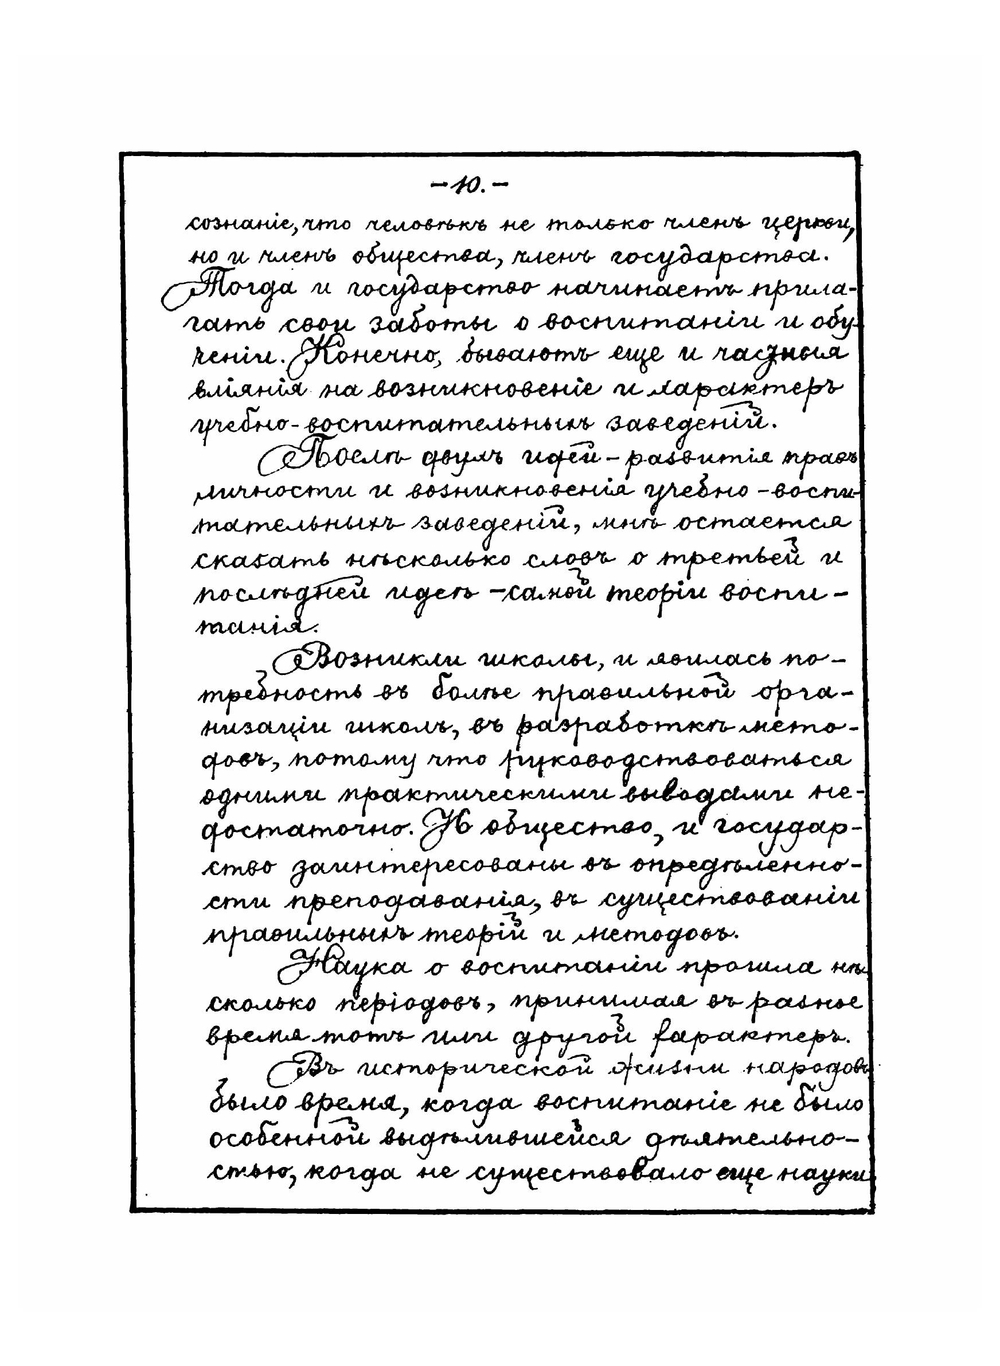 -10.-
сознаніе, что человѣкъ не только членъ церкви,
но и членъ общества, членъ государства.
Тогда и государство начинаетъ прила-
гать свои заботы о воспитаніи и обу-
ченіи. Конечно, бываютъ еще и частныя
вліянія на возникновеніе и характеръ
учебно-воспитательныхъ заведеній.
Послѣ двухъ идей - развитія правъ
личности и возникновенія учебно-воспи-
тательныхъ заведеній, мнѣ остается
сказать нѣсколько словъ о третьей и
послѣдней идеѣ - самой теоріи воспи-
танія.
Возникли школы, и явилась по-
требность въ болѣе правильной орга-
низаціи школъ, въ разработкѣ мето-
довъ, потому что руководствоваться
одними практическими выводами не-
достаточно. И общество, и государ-
ство заинтересованы въ опредѣленно-
сти преподаванія, въ существованіи
правильныхъ теорій и методовъ.
Наука о воспитаніи прошла нѣ-
сколько періодовъ, принимая въ разное
время тотъ или другой характеръ.
Въ исторической жизни народовъ
было время, когда воспитаніе не было
особенной выдѣлившейся дѣятельно-
стью, когда не существовало еще науки